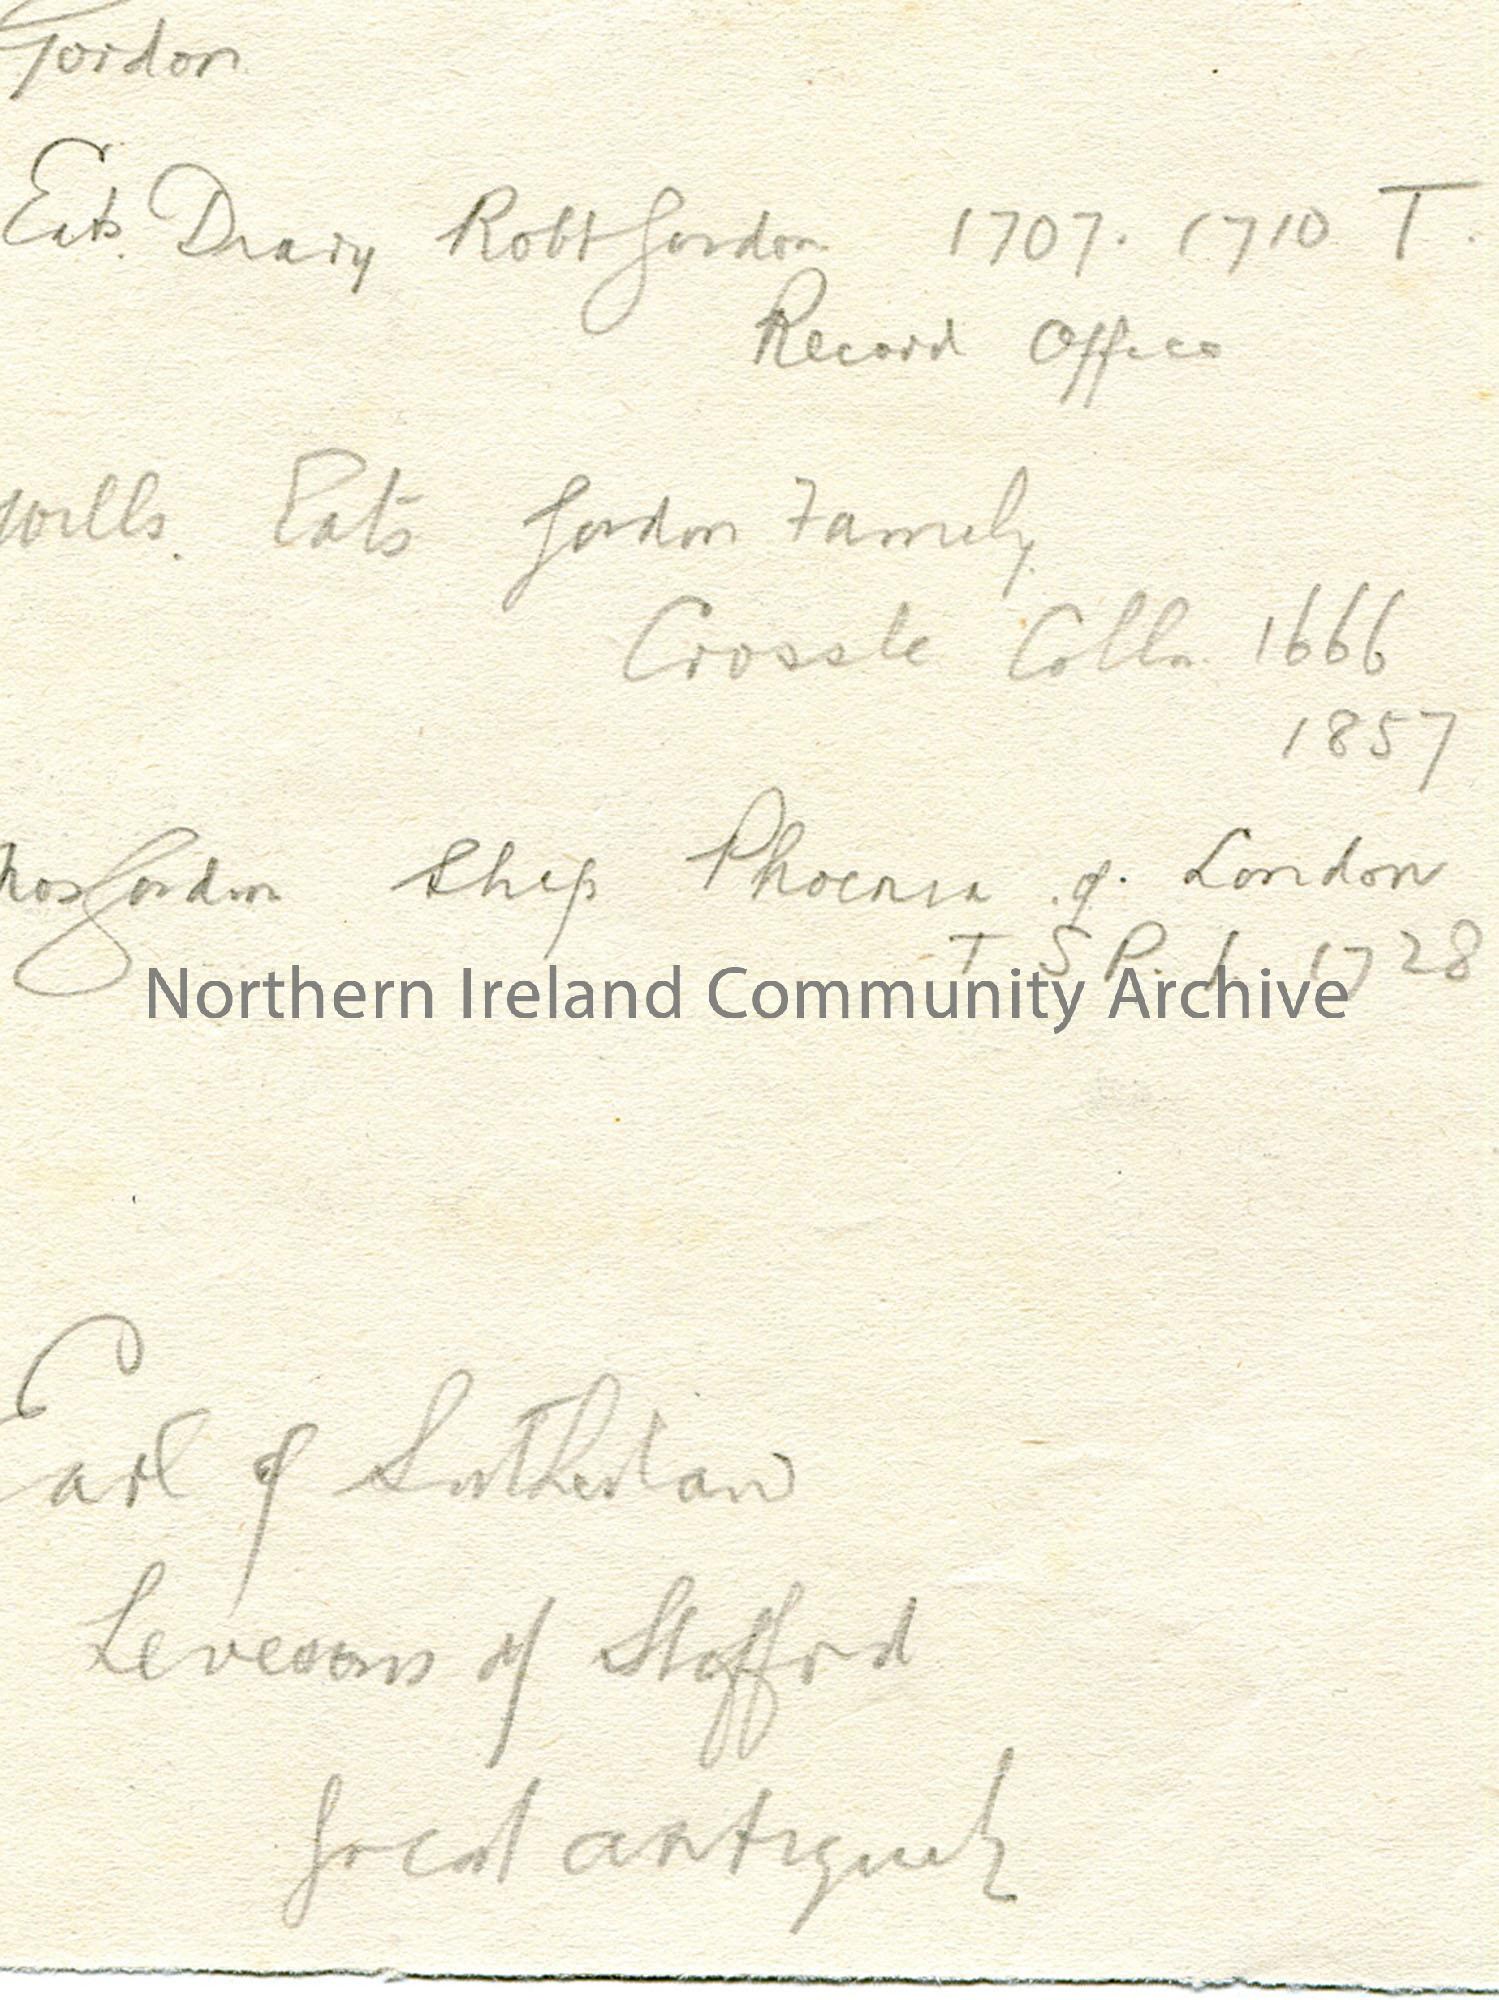 Gordon
Exts. Diary Robt Gordon 1707. 1710 T.
Record Office
Wills. Exts Gordon Family
Crossle Colln. 1666
1857
Thos Gordon Ship Phoenix of London
T S P. I. 1728
Northern Ireland Community Archive
Earl of Sutherland
Levesons of Stafford
Great antiquity